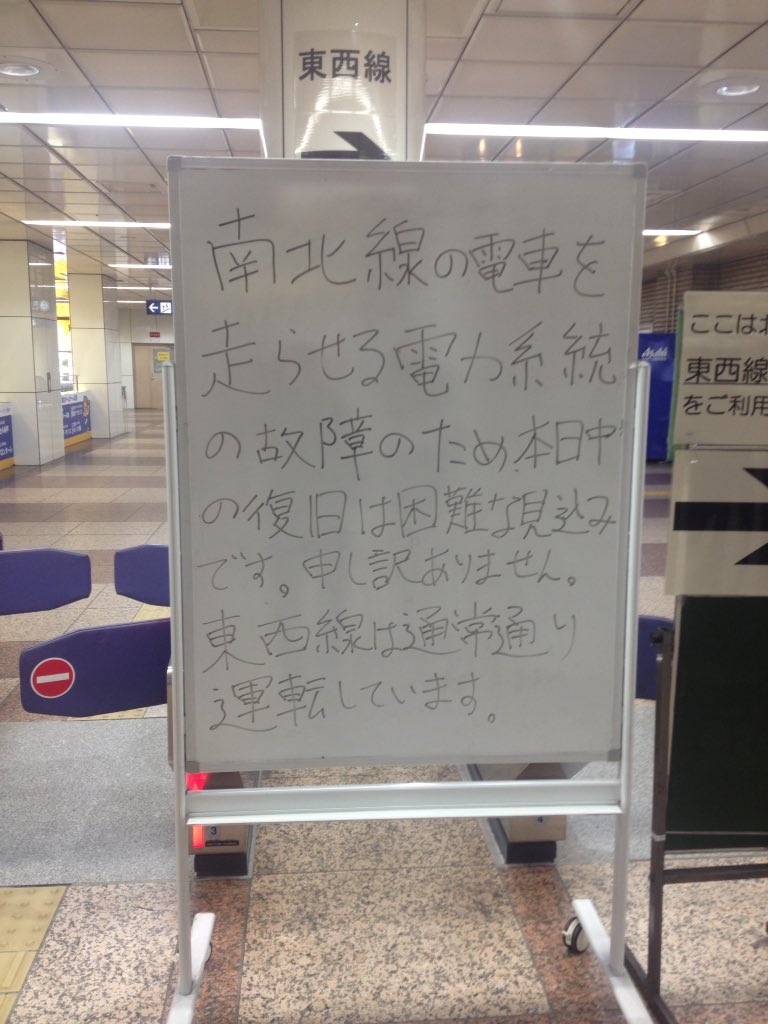 東西線
南北線の電車を
走らせる電力系統
の故障のため本日中
の復旧は困難な見込み
です。申し訳ありません。
東西線は通常通り
運転しています。
ここは
東西線
をご利用
Asahi
3
4